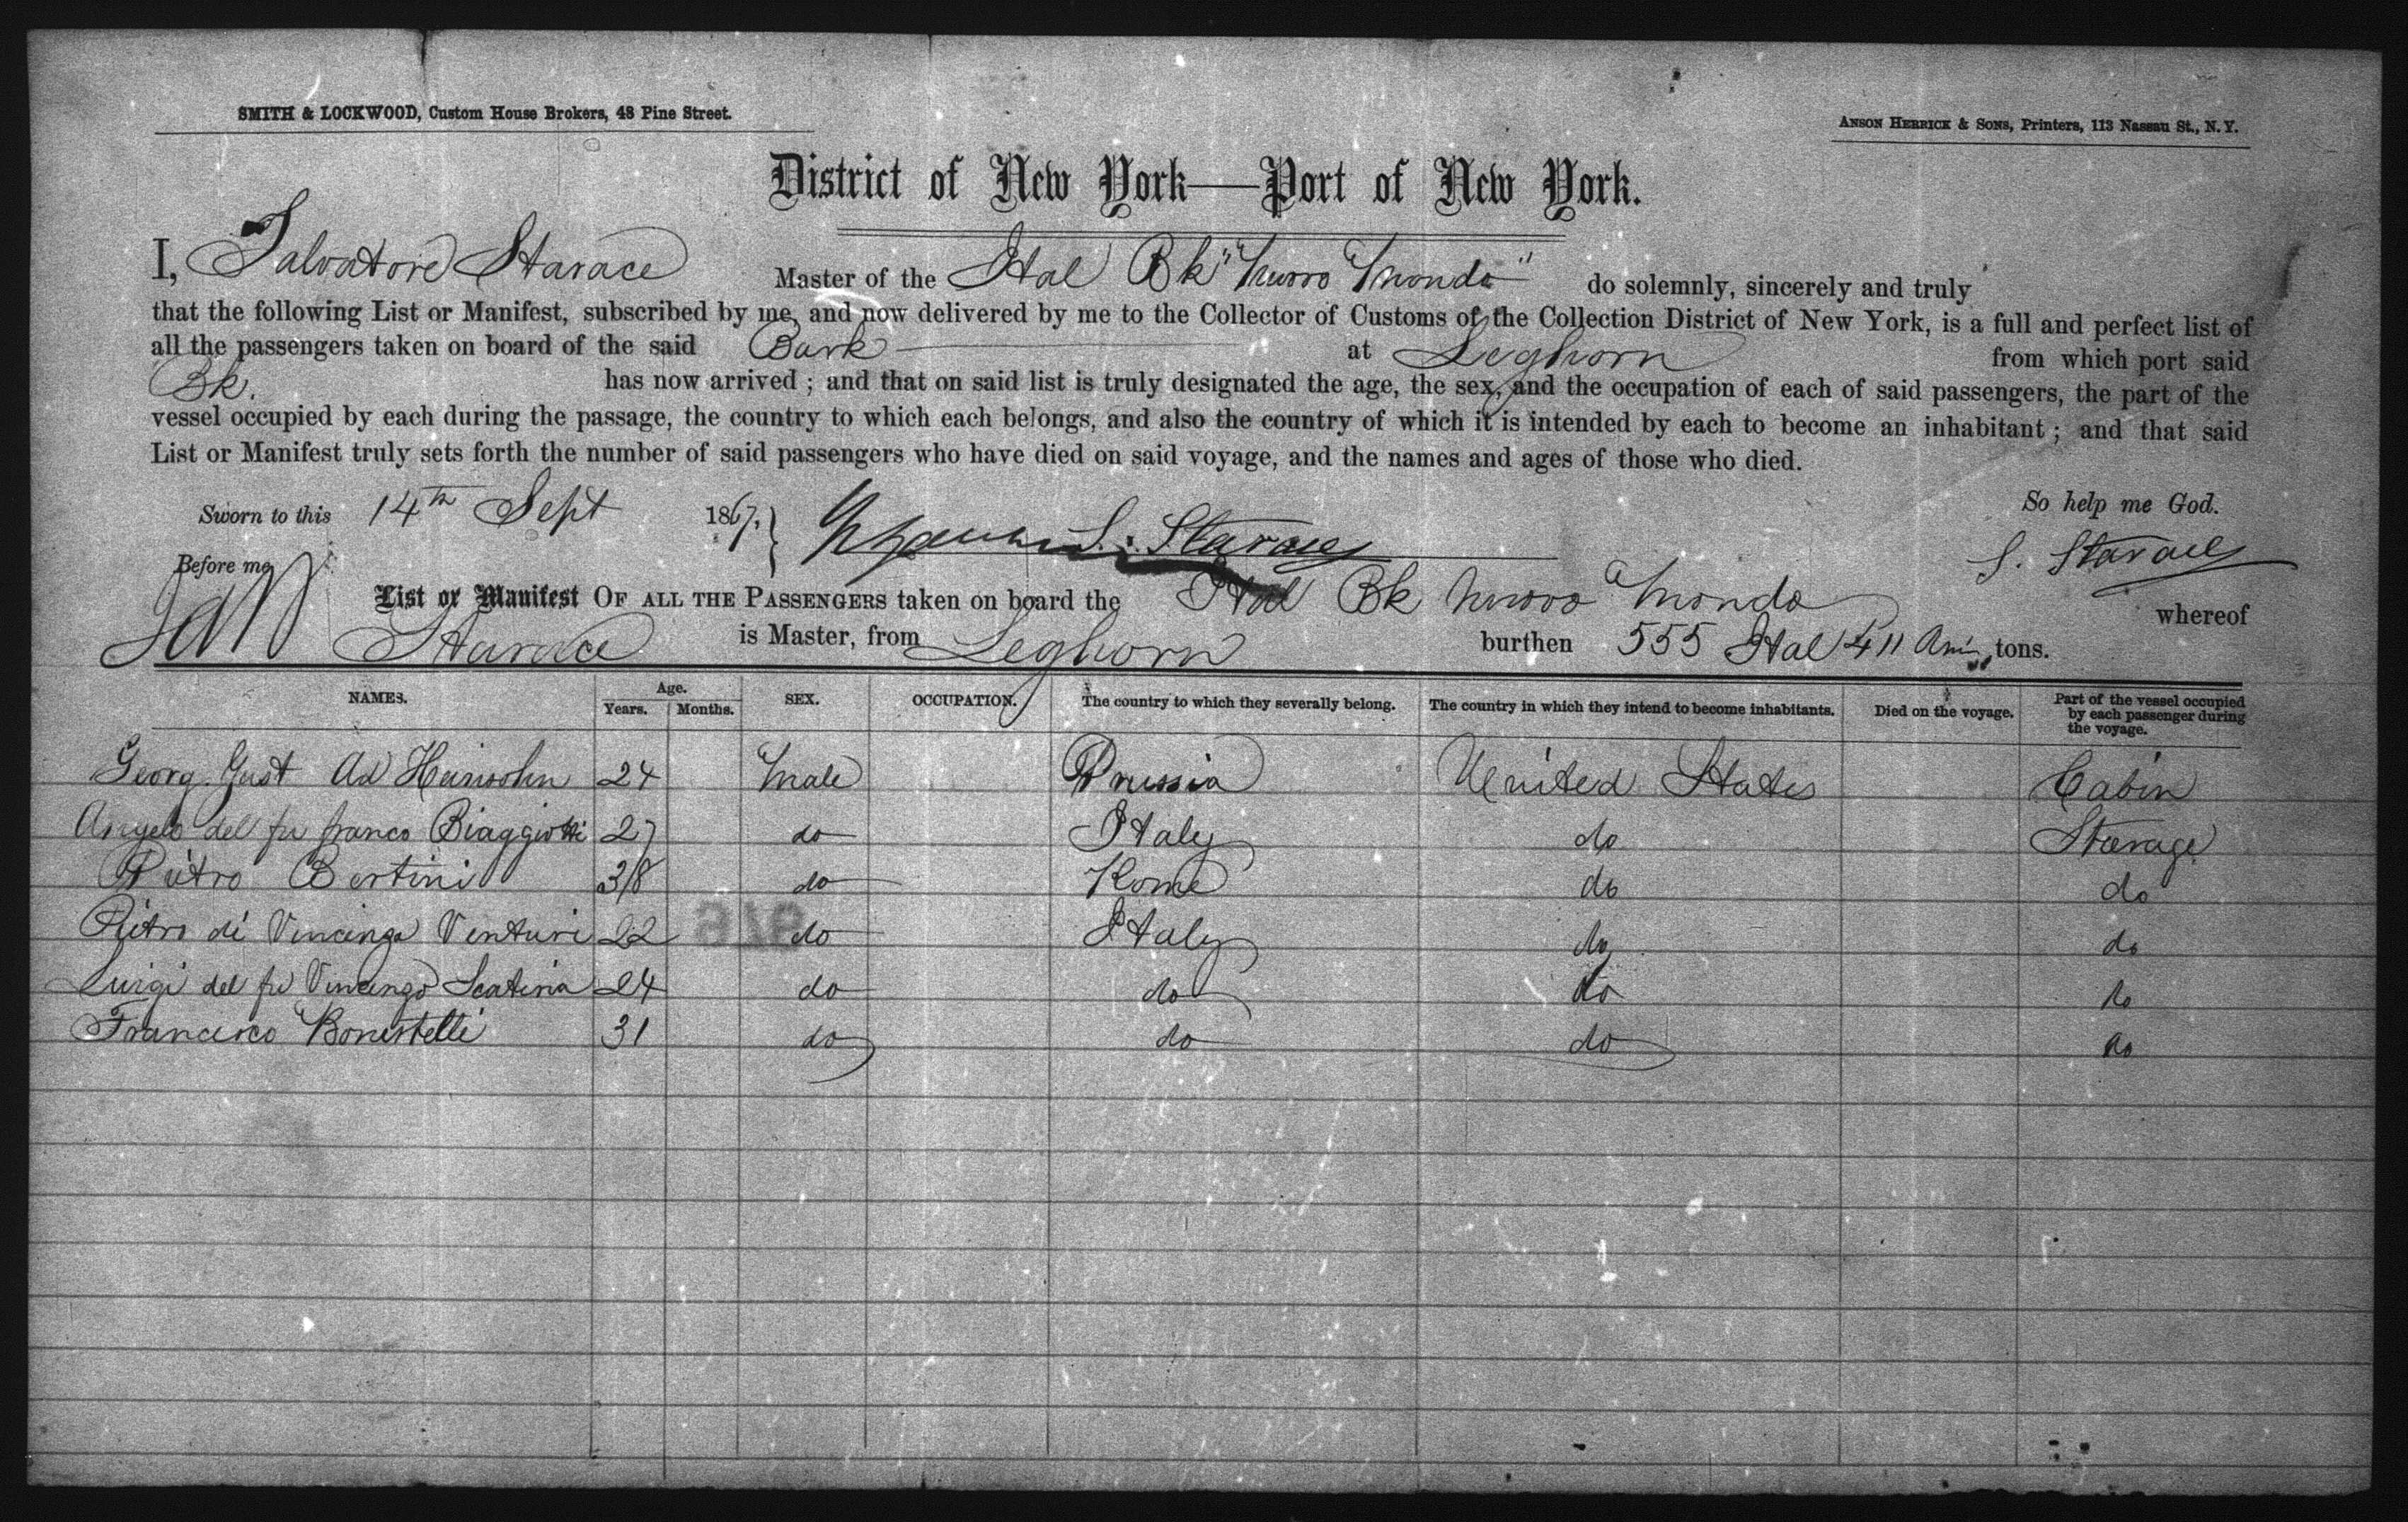 SMITH & LOCKWOOD, Custom House Brokers, 48 Pine Street.
ANSON HERRICK & SONS, Printers, 113 Nassau St., N. Y.
District of New York—Port of New York.
I, Salvatore Starace Master of the Ital Bk "Nuovo Mondo" do solemnly, sincerely and truly
that the following List or Manifest, subscribed by me, and now delivered by me to the Collector of Customs of the Collection District of New York, is a full and perfect list of
all the passengers taken on board of the said Bark at Leghorn from which port said
Bk. has now arrived ; and that on said list is truly designated the age, the sex, and the occupation of each of said passengers, the part of the
vessel occupied by each during the passage, the country to which each belongs, and also the country of which it is intended by each to become an inhabitant ; and that said
List or Manifest truly sets forth the number of said passengers who have died on said voyage, and the names and ages of those who died.
So help me God.
Sworn to this 14th Sept 1867. S. Starace
S. Starace
Before me
List or Manifest OF ALL THE PASSENGERS taken on board the Ital Bk Nuovo Mondo whereof
Starace is Master, from Leghorn burthen 555 Ital 411 Am. tons.
NAMES. Age. Years. Months. SEX. OCCUPATION. The country to which they severally belong. The country in which they intend to become inhabitants. Died on the voyage. Part of the vessel occupied by each passenger during the voyage.
Georg Gust Ad Heinsohn 24 Male Prussia United States Cabin
Angelo del fu franco Biaggiotti 27 do Italy do Steerage
Pietro Bertini 38 do Rome do do
Pietro di Vincenzo Venturi 22 do Italy do do
Luigi del fu Vincenzo Scatena 24 do do do do
Francesco Bonistelli 31 do do do do
976